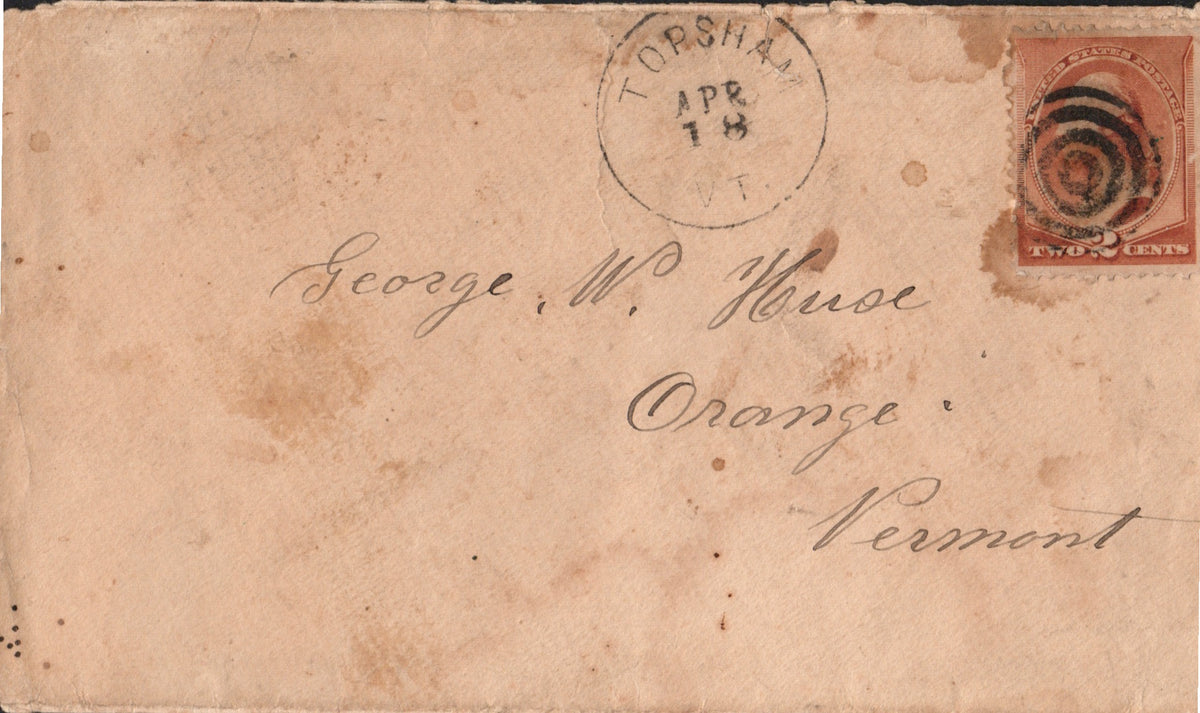 TOPSHAM
APR
18
VT.
UNITED STATES POSTAGE
TWO 2 CENTS
George. W. Huse
Orange.
Vermont